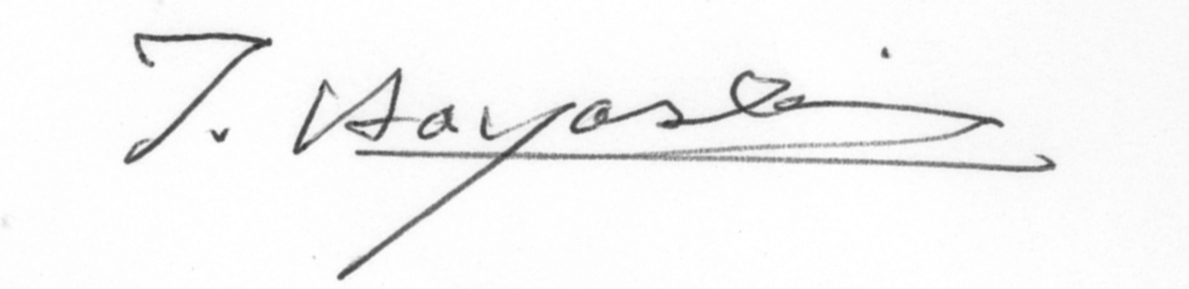 T. Hayashi